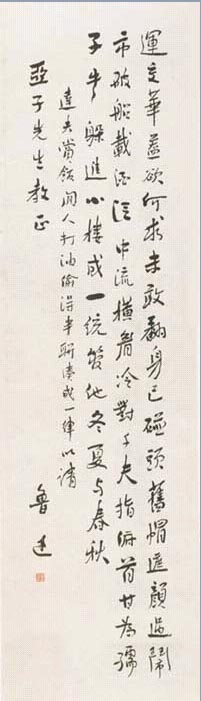 運交華蓋欲何求未敢翻身已碰頭舊帽遮顔過鬧
市破船載酒泛中流橫眉冷對千夫指俯首甘為孺
子牛躲進小樓成一統管他冬夏与春秋
達夫賞飯閑人打油偷得半聯湊成一律以請
亞子先生教正
魯迅